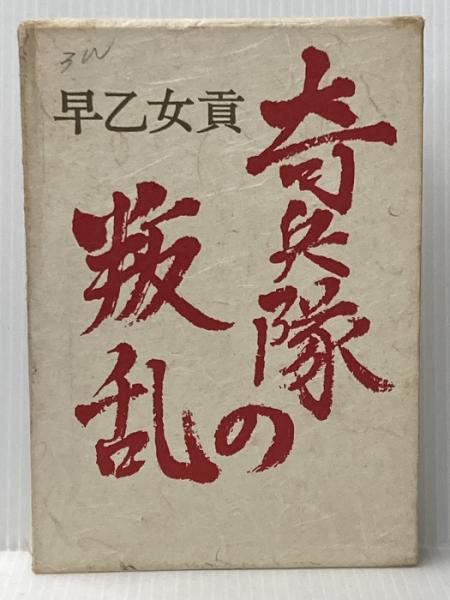 早乙女貢
奇兵隊の
叛乱